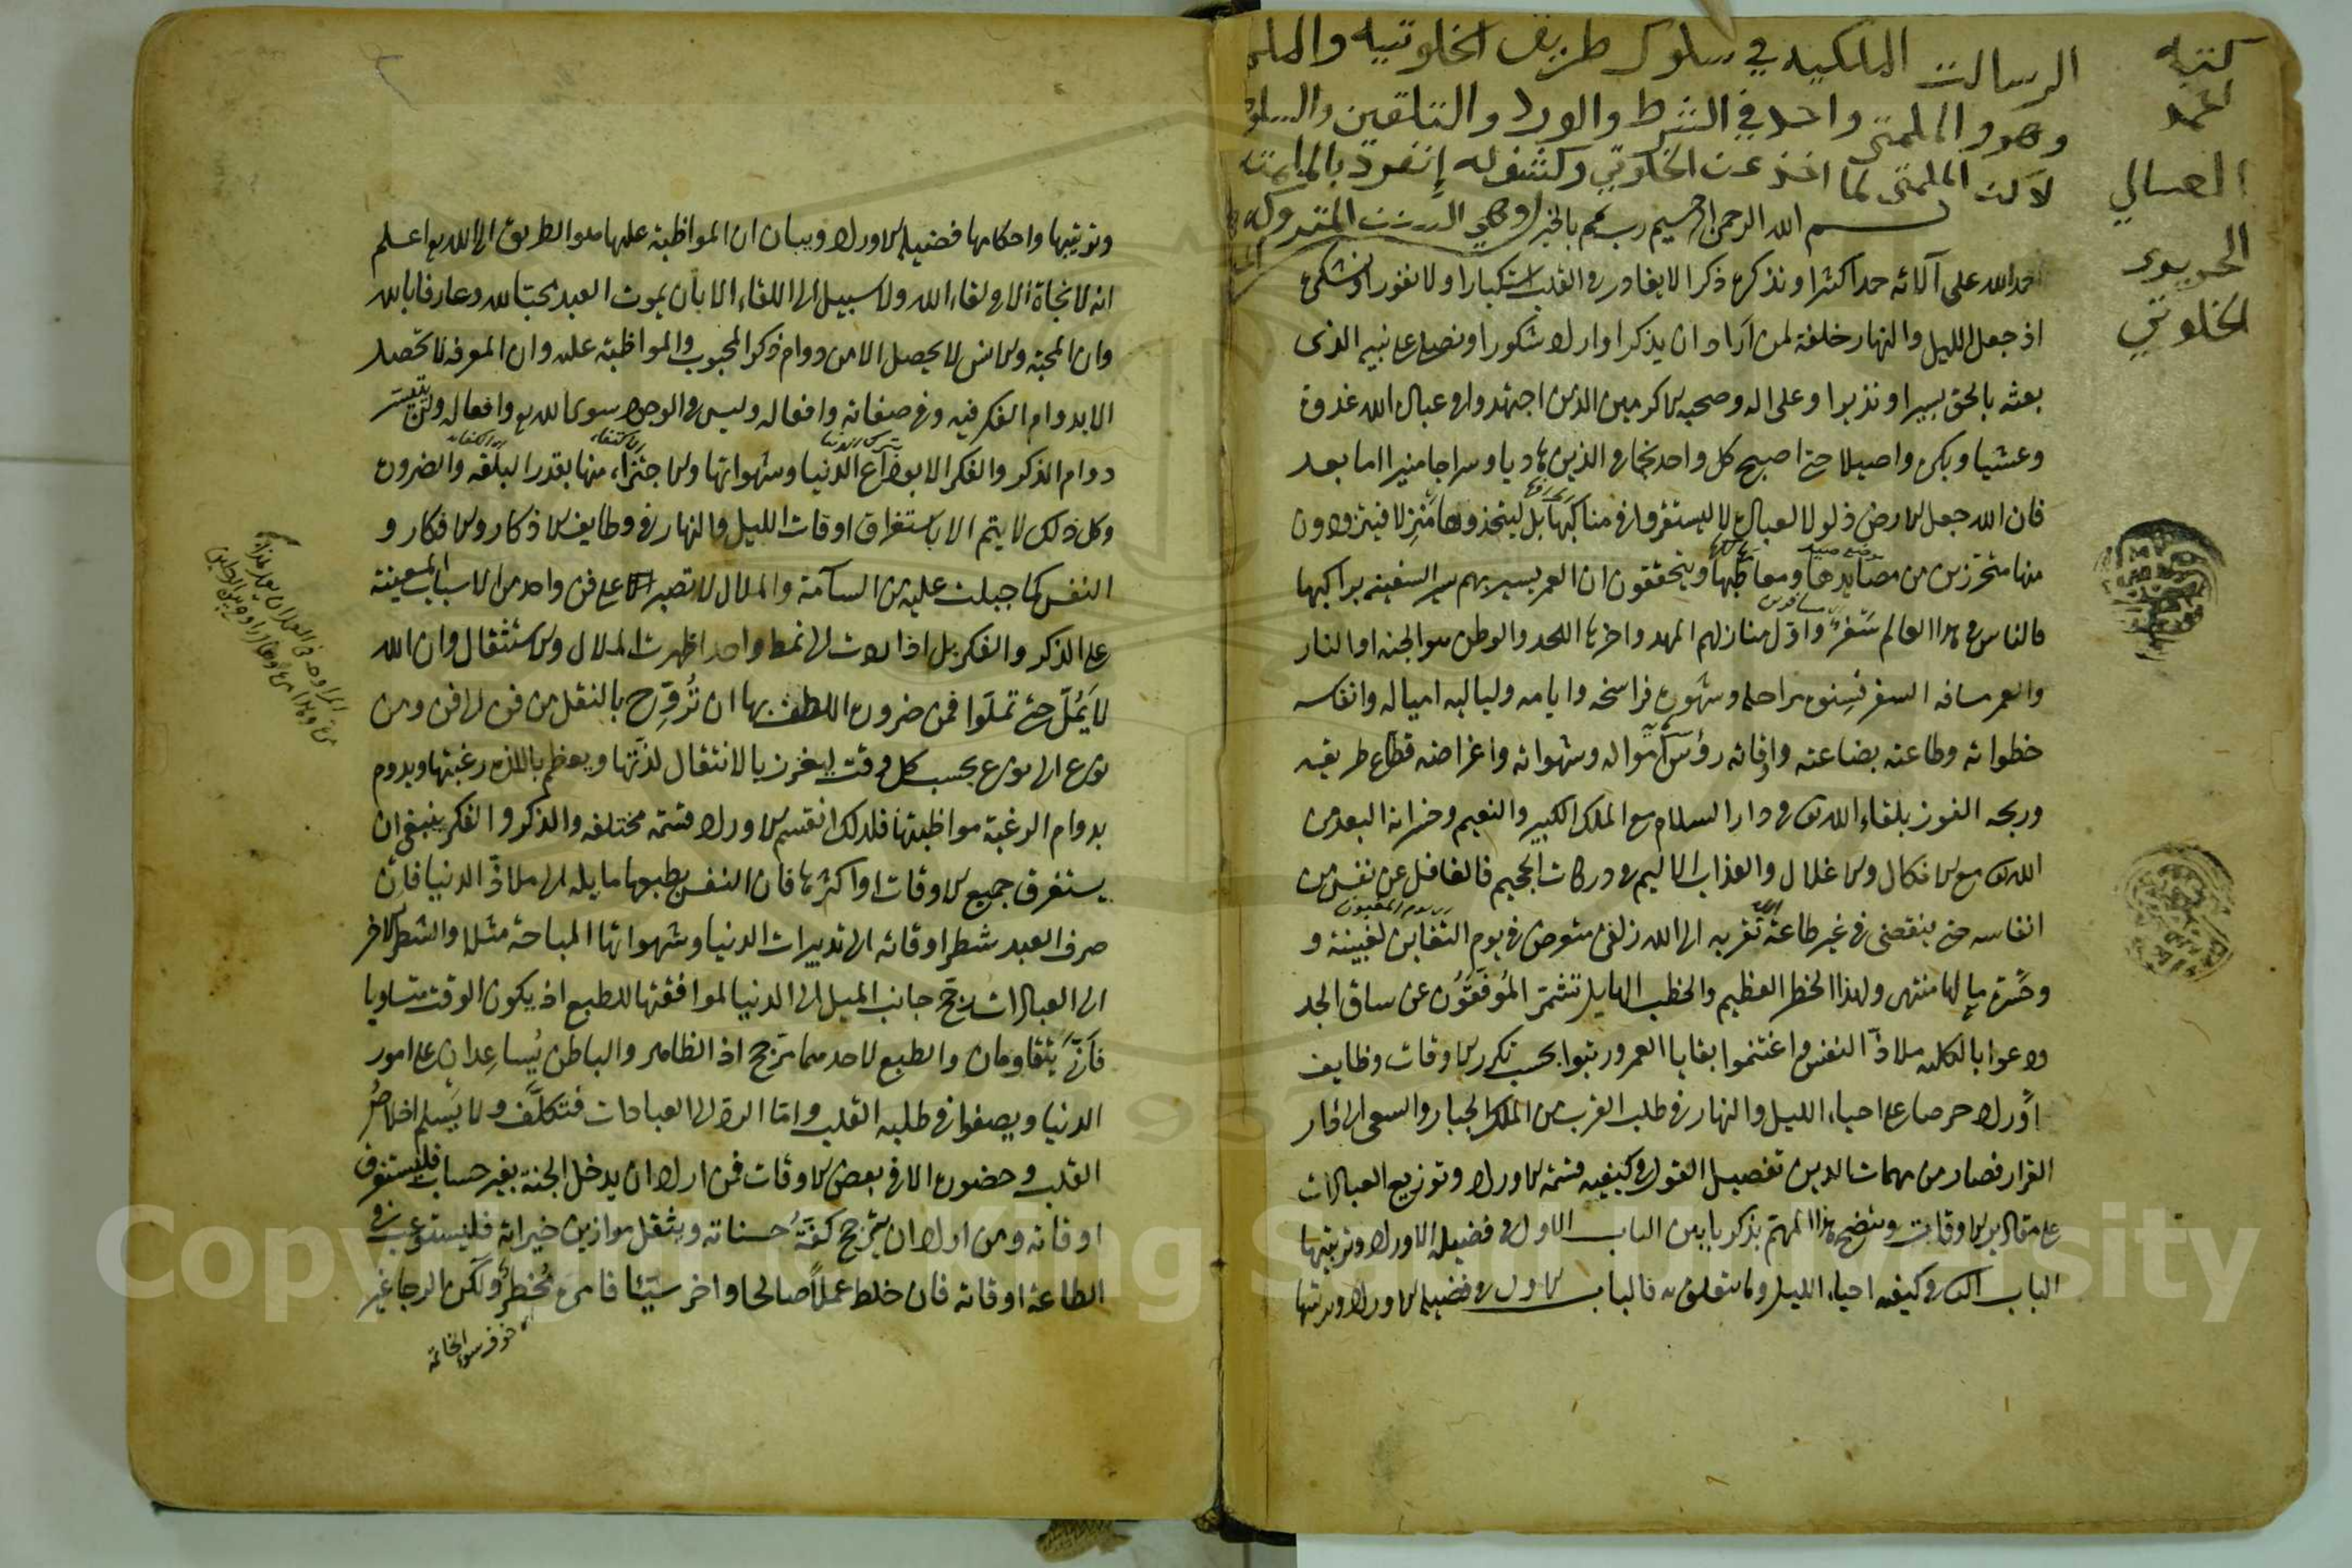 كتبه
احمد
العسالي
الحريري
الخلوتي
الرسالت الملكيه في سلوك طريق الخلوتيه والملم
وهو والملمتى واحد في الشرط والورد والتلقين والسلوك
لاكن الملمتى لما اخذ عن الخلوتي وكشفوله إنفرد بالملمته
بسم الله الرحمن الرحيم رب تمم بالخير وهي السنن المتروكه
نحمد الله على آلائه حمدا كثيرا ونذكره ذكرا لا يغادر فى القلب استكبارا ولا نفورا ونشكره
اذ جعل الليل والنهار خلفة لمن اراد ان يذكر او اراد شكورا ونصلى على نبيه الذى
بعثه بالحق بشيرا ونذيرا وعلى اله وصحبه الاكرمين الذين اجتهدوا فى عبادة الله غدوة
وعشيا وبكرة واصيلا حتى اصبح كل واحد نجما فى الدين هاديا وسراجا منيرا اما بعد
فان الله جعل الارض ذلولا لعباده لا ليستقروا فى مناكبها بل ليتخذوها منزلا فيتزودون
منها متحرزين من مصايدها ومعاطبها ويتحققون ان العمر يسير بهم سير السفينه براكبها
فالناس فى هذا العالم سفر واول منازلهم المهد واخرها اللحد والوطن هو الجنه او النار
والعمر مسافه السفر فسنوه مراحله وشهوره فراسخه وايامه ولياليه امياله وانفاسه
خطواته وطاعته بضاعته واوقاته رؤس امواله وشهواته واغراضه قطاع طريقه
وربحه الفوز بلقاء الله تعالى فى دار السلام مع الملك الكبير والنعيم وخسرانه البعد من
الله تعالى مع الانكال والاغلال والعذاب الاليم فى دركات الجحيم فالغافل عن نفس من
انفاسه حتى ينقضى فى غير طاعة تقربه الى الله زلفى متعرض فى يوم التغابن لغبينة و
وحسرة ما لها منتهى ولهذا الخطر العظيم والخطب الهايل تشمر الموفقون عن ساق الجد
وودعوا بالكليه ملاذ النفس واغتنموا بقايا العمر ورتبوا بحسب تكرر الاوقات وظايف
اوراد حرصا على احياء الليل والنهار فى طلب القرب من الملك الجبار والسعى الى دار
القرار فصار من مهمات الدين تفصيل القول فى كيفيه قسمة الاوراد وتوزيع العبادات
على مقادير الاوقات ويتضح هذا المهم بذكر بابين الباب الاول فى فضيلة الاوراد وترتيبها
الباب الثانى فى كيفيه احياء الليل وما يتعلق به فالباب الاول فى فضيلة الاوراد وترتيبها
وترتيبها واحكامها فضيلة الاوراد وبيان ان المواظبة عليها هو الطريق الى الله تع اعلم
انه لا نجاة الا فى لقاء الله ولا سبيل الى اللقاء الا بان يموت العبد محبا لله وعارفا بالله
وان المحبة والانس لا يحصل الا من دوام ذكر المحبوب والمواظبة عليه وان المعرفه لا تحصل
الا بدوام الفكر فيه وفى صفاته وافعاله وليس فى الوجود سوى الله تع وافعاله ولن يتيسر
دوام الذكر والفكر الا بوداع الدنيا وشهواتها والاجتزاء منها بقدر البلغه والضروره
وكل ذلك لا يتم الا باستغراق اوقات الليل والنهار فى وظايف الاذكار والافكار و
النفس لما جبلت عليه من السآمة والملال لا تصبر على فن واحد من الاسباب المعينة
على الذكر والفكر بل اذا ردت الى نمط واحد اظهرت الملال والاستثقال وان الله
لا يمل حتى تملوا فمن ضرورة اللطف بها ان تروح بالتنقل من فن الى فن ومن
نوع الى نوع بحسب كل وقت ليغزر بالانتقال لذتها ويعظم باللذه رغبتها ويدوم
بدوام الرغبة مواظبتها فلذلك انقسم الاوراد قسمة مختلفه والذكر والفكر ينبغى ان
يستغرق جميع الاوقات او اكثرها فان النفس بطبعها مايله الى ملاذ الدنيا فان
صرف العبد شطر اوقاته الى تدبيرات الدنيا وشهواتها المباحة مثلا والشطر الاخر
الى العبادات رجح جانب الميل الى الدنيا لموافقتها للطبع اذ يكون الوقت متساويا
فانى يتقاومان والطبع لاحدهما مرجح اذ الظاهر والباطن يساعدان على امور
الدنيا ويصفوا فى طلبه القلب واما الرد الى العبادات فتكلف ولا يسلم اخلاص
القلب وحضوره الا فى بعض الاوقات فمن اراد ان يدخل الجنة بغير حساب فليستغرق
اوقاته ومن اراد ان يترجح كفة حسناته ويثقل موازين خيراته فليستوعب فى
الطاعة اوقاته فان خلط عملا صالحا واخر سيئا فامره مخطر ولكن الرجا غير
خوف سوء الخاتمة
Copyright © King Saud University